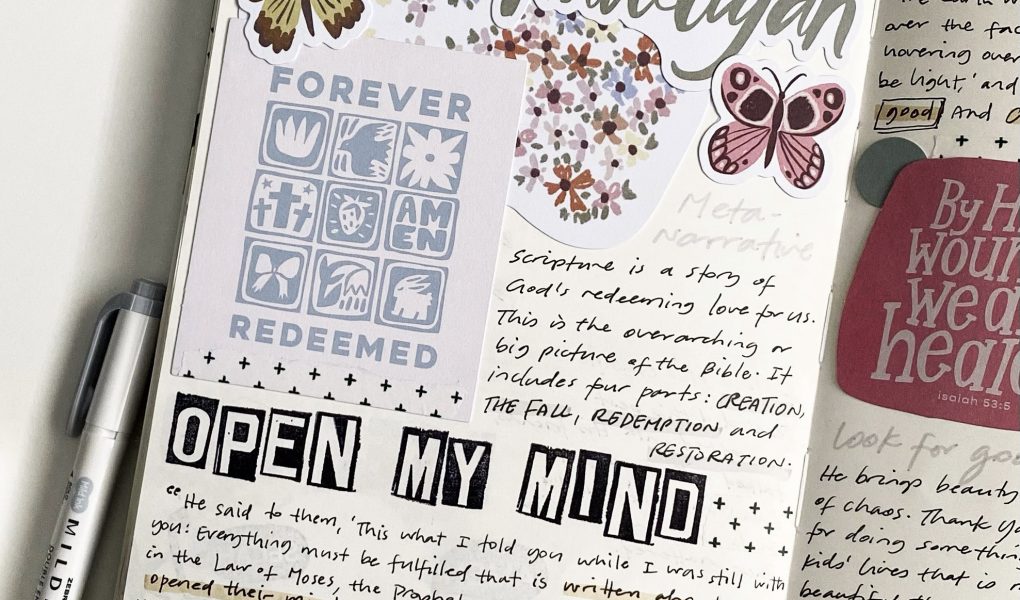 Hallelujah
FOREVER
AMEN
REDEEMED
Meta-
narrative
Scripture is a story of
God's redeeming love for us.
This is the overarching or
big picture of the Bible. It
includes four parts: CREATION,
THE FALL, REDEMPTION and
RESTORATION.
OPEN MY MIND
"He said to them, 'This what I told you while I was still with
you: Everything must be fulfilled that is written
in the Law of Moses, the
opened their
MILD
over the
hovering over
be light,' and
good And
By H
woun
we a
heale
isaiah 53:5
Look for
He brings beauty
of chaos. Thank
for doing
kids' lives that is
beautiful